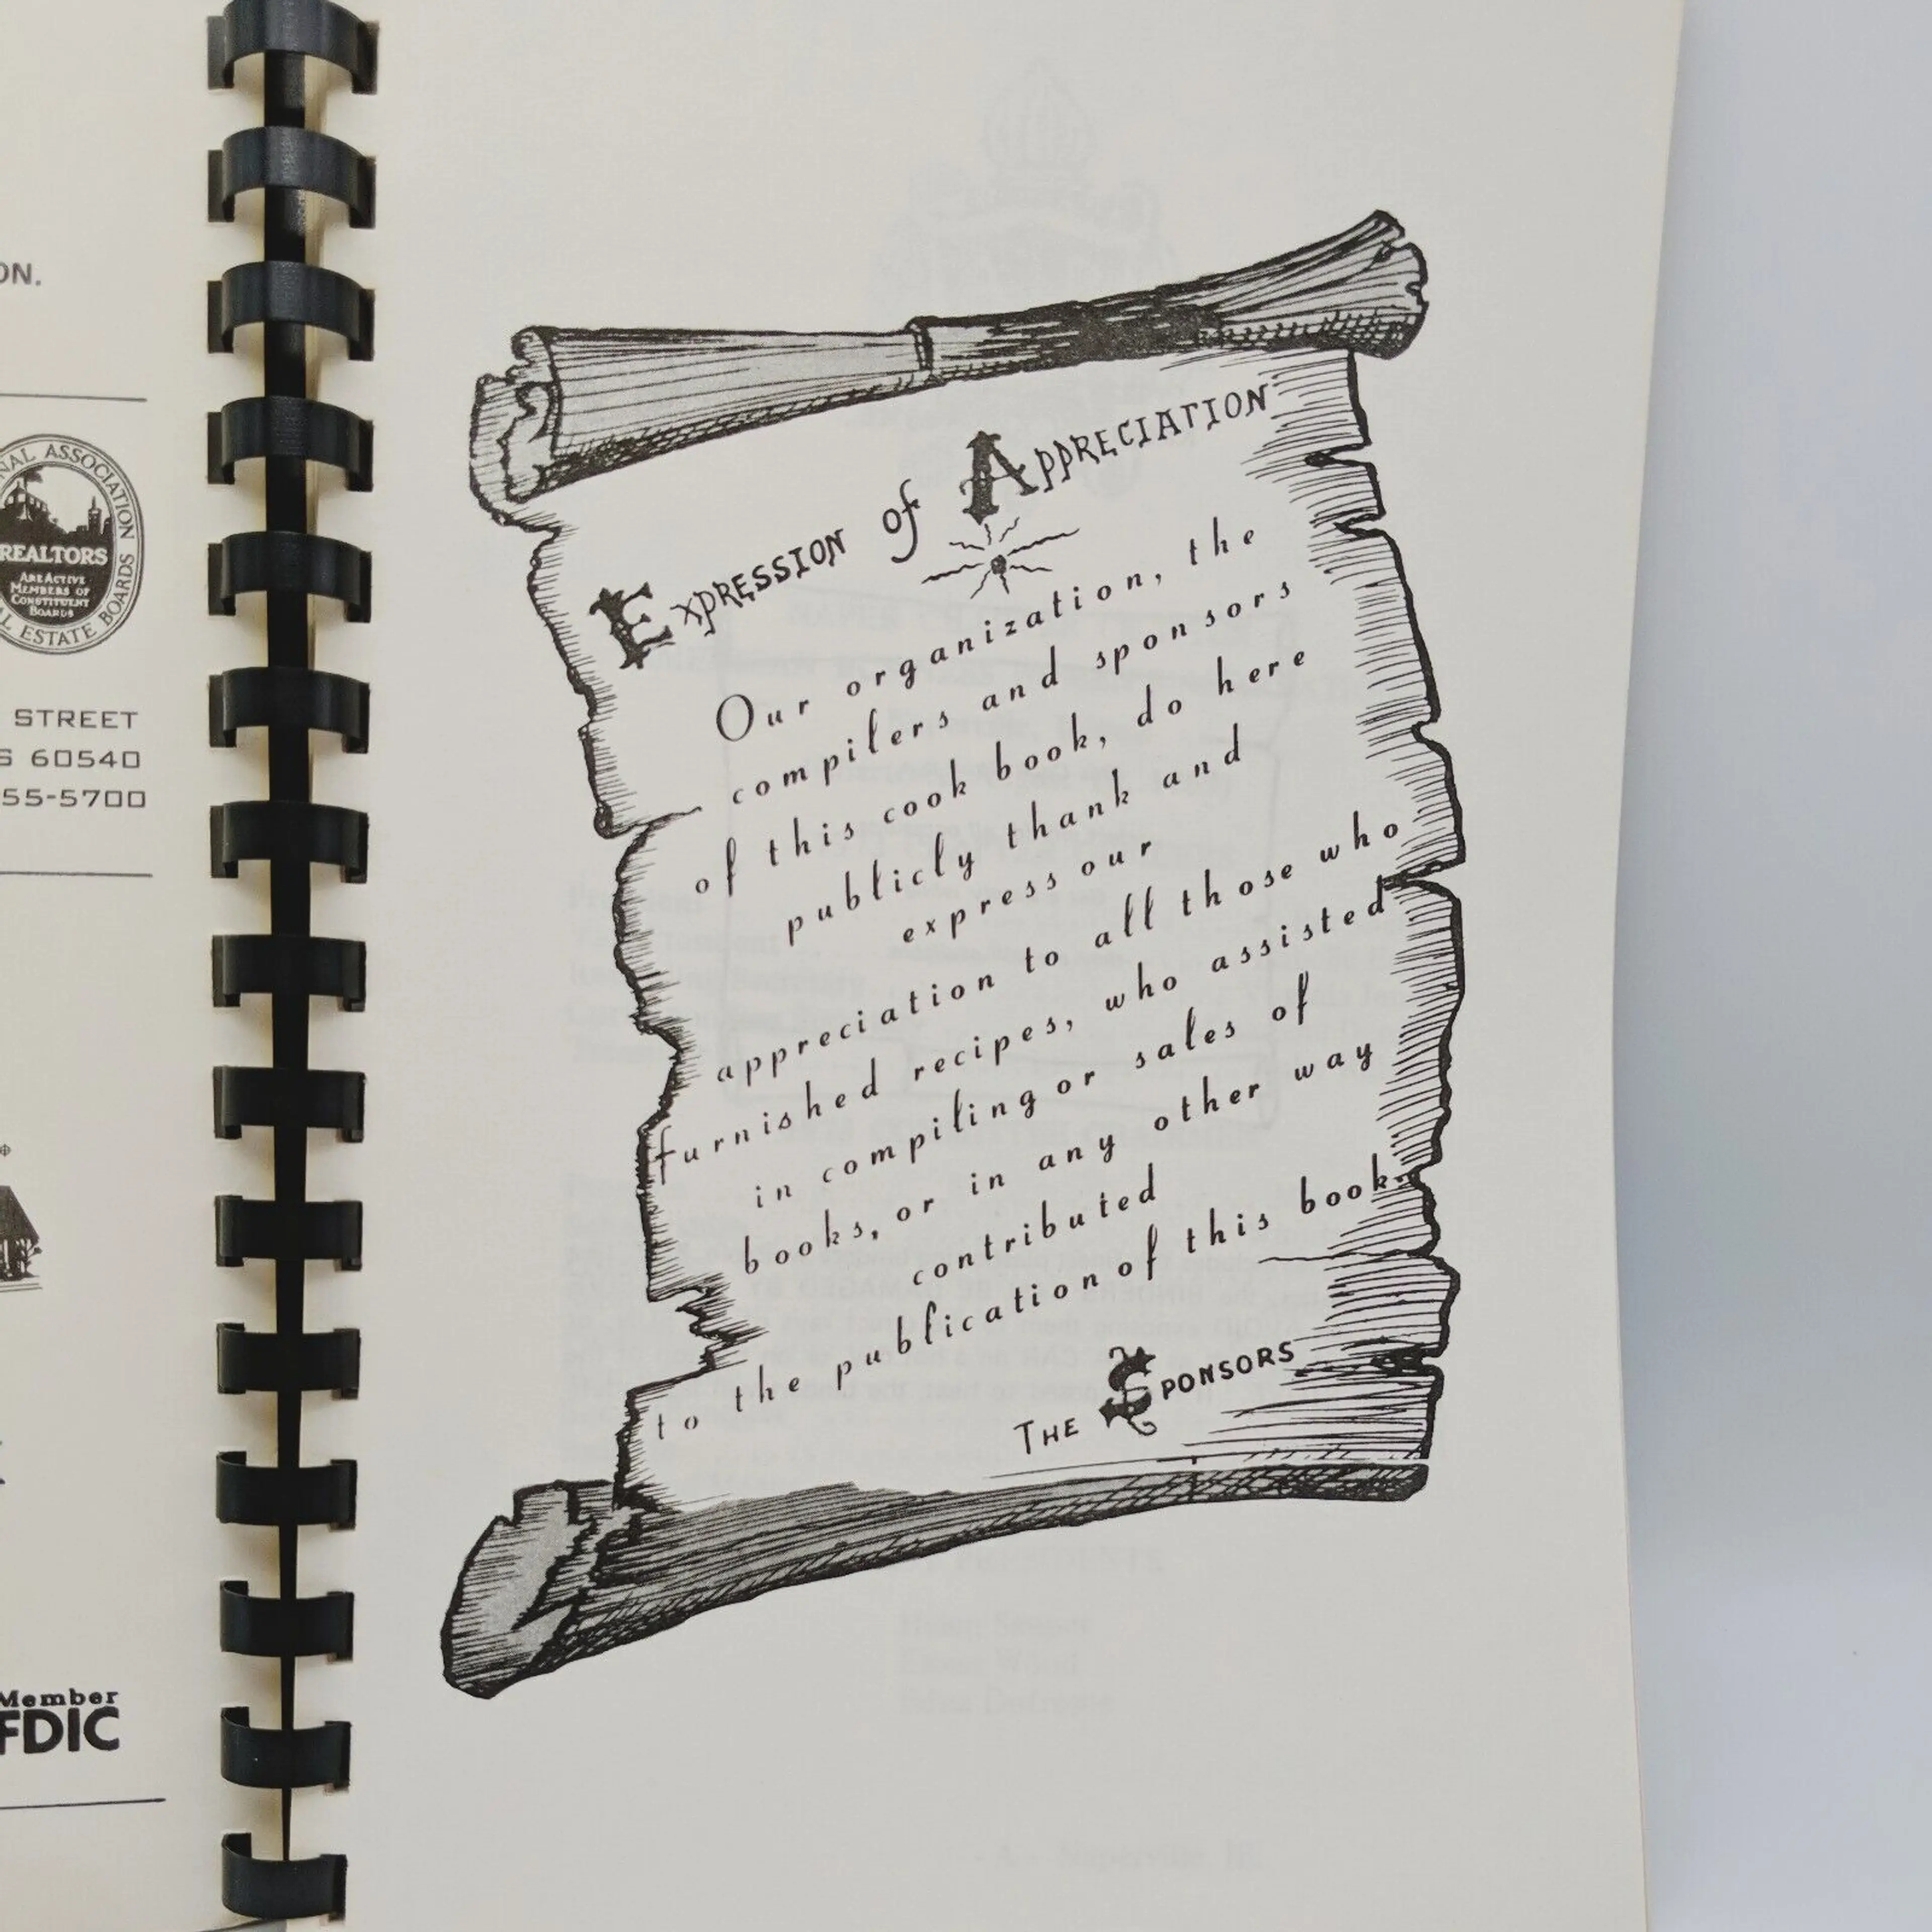 ON.
NAL ASSOCIATION
REALTORS
ARE ACTIVE
MEMBERS OF
CONSTITUENT
BOARDS
AL ESTATE BOARDS
STREET
S 60540
55-5700
Member
FDIC
EXPRESSION of APPRECIATION
Our organization, the
compilers and sponsors
of this cook book, do here
publicly thank and
express our
appreciation to all those who
furnished recipes, who assisted
in compiling or sales of
books, or in any other way
contributed
to the publication of this book.
THE SPONSORS